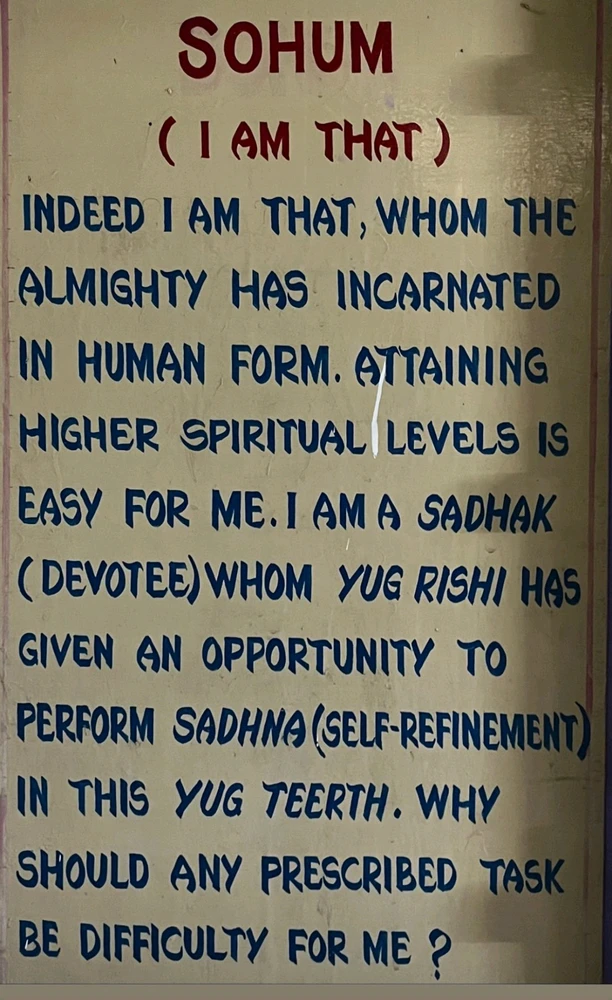 SOHUM
( I AM THAT )
INDEED I AM THAT, WHOM THE
ALMIGHTY HAS INCARNATED
IN HUMAN FORM. ATTAINING
HIGHER SPIRITUAL LEVELS IS
EASY FOR ME. I AM A SADHAK
( DEVOTEE) WHOM YUG RISHI HAS
GIVEN AN OPPORTUNITY TO
PERFORM SADHNA (SELF-REFINEMENT)
IN THIS YUG TEERTH. WHY
SHOULD ANY PRESCRIBED TASK
BE DIFFICULTY FOR ME ?